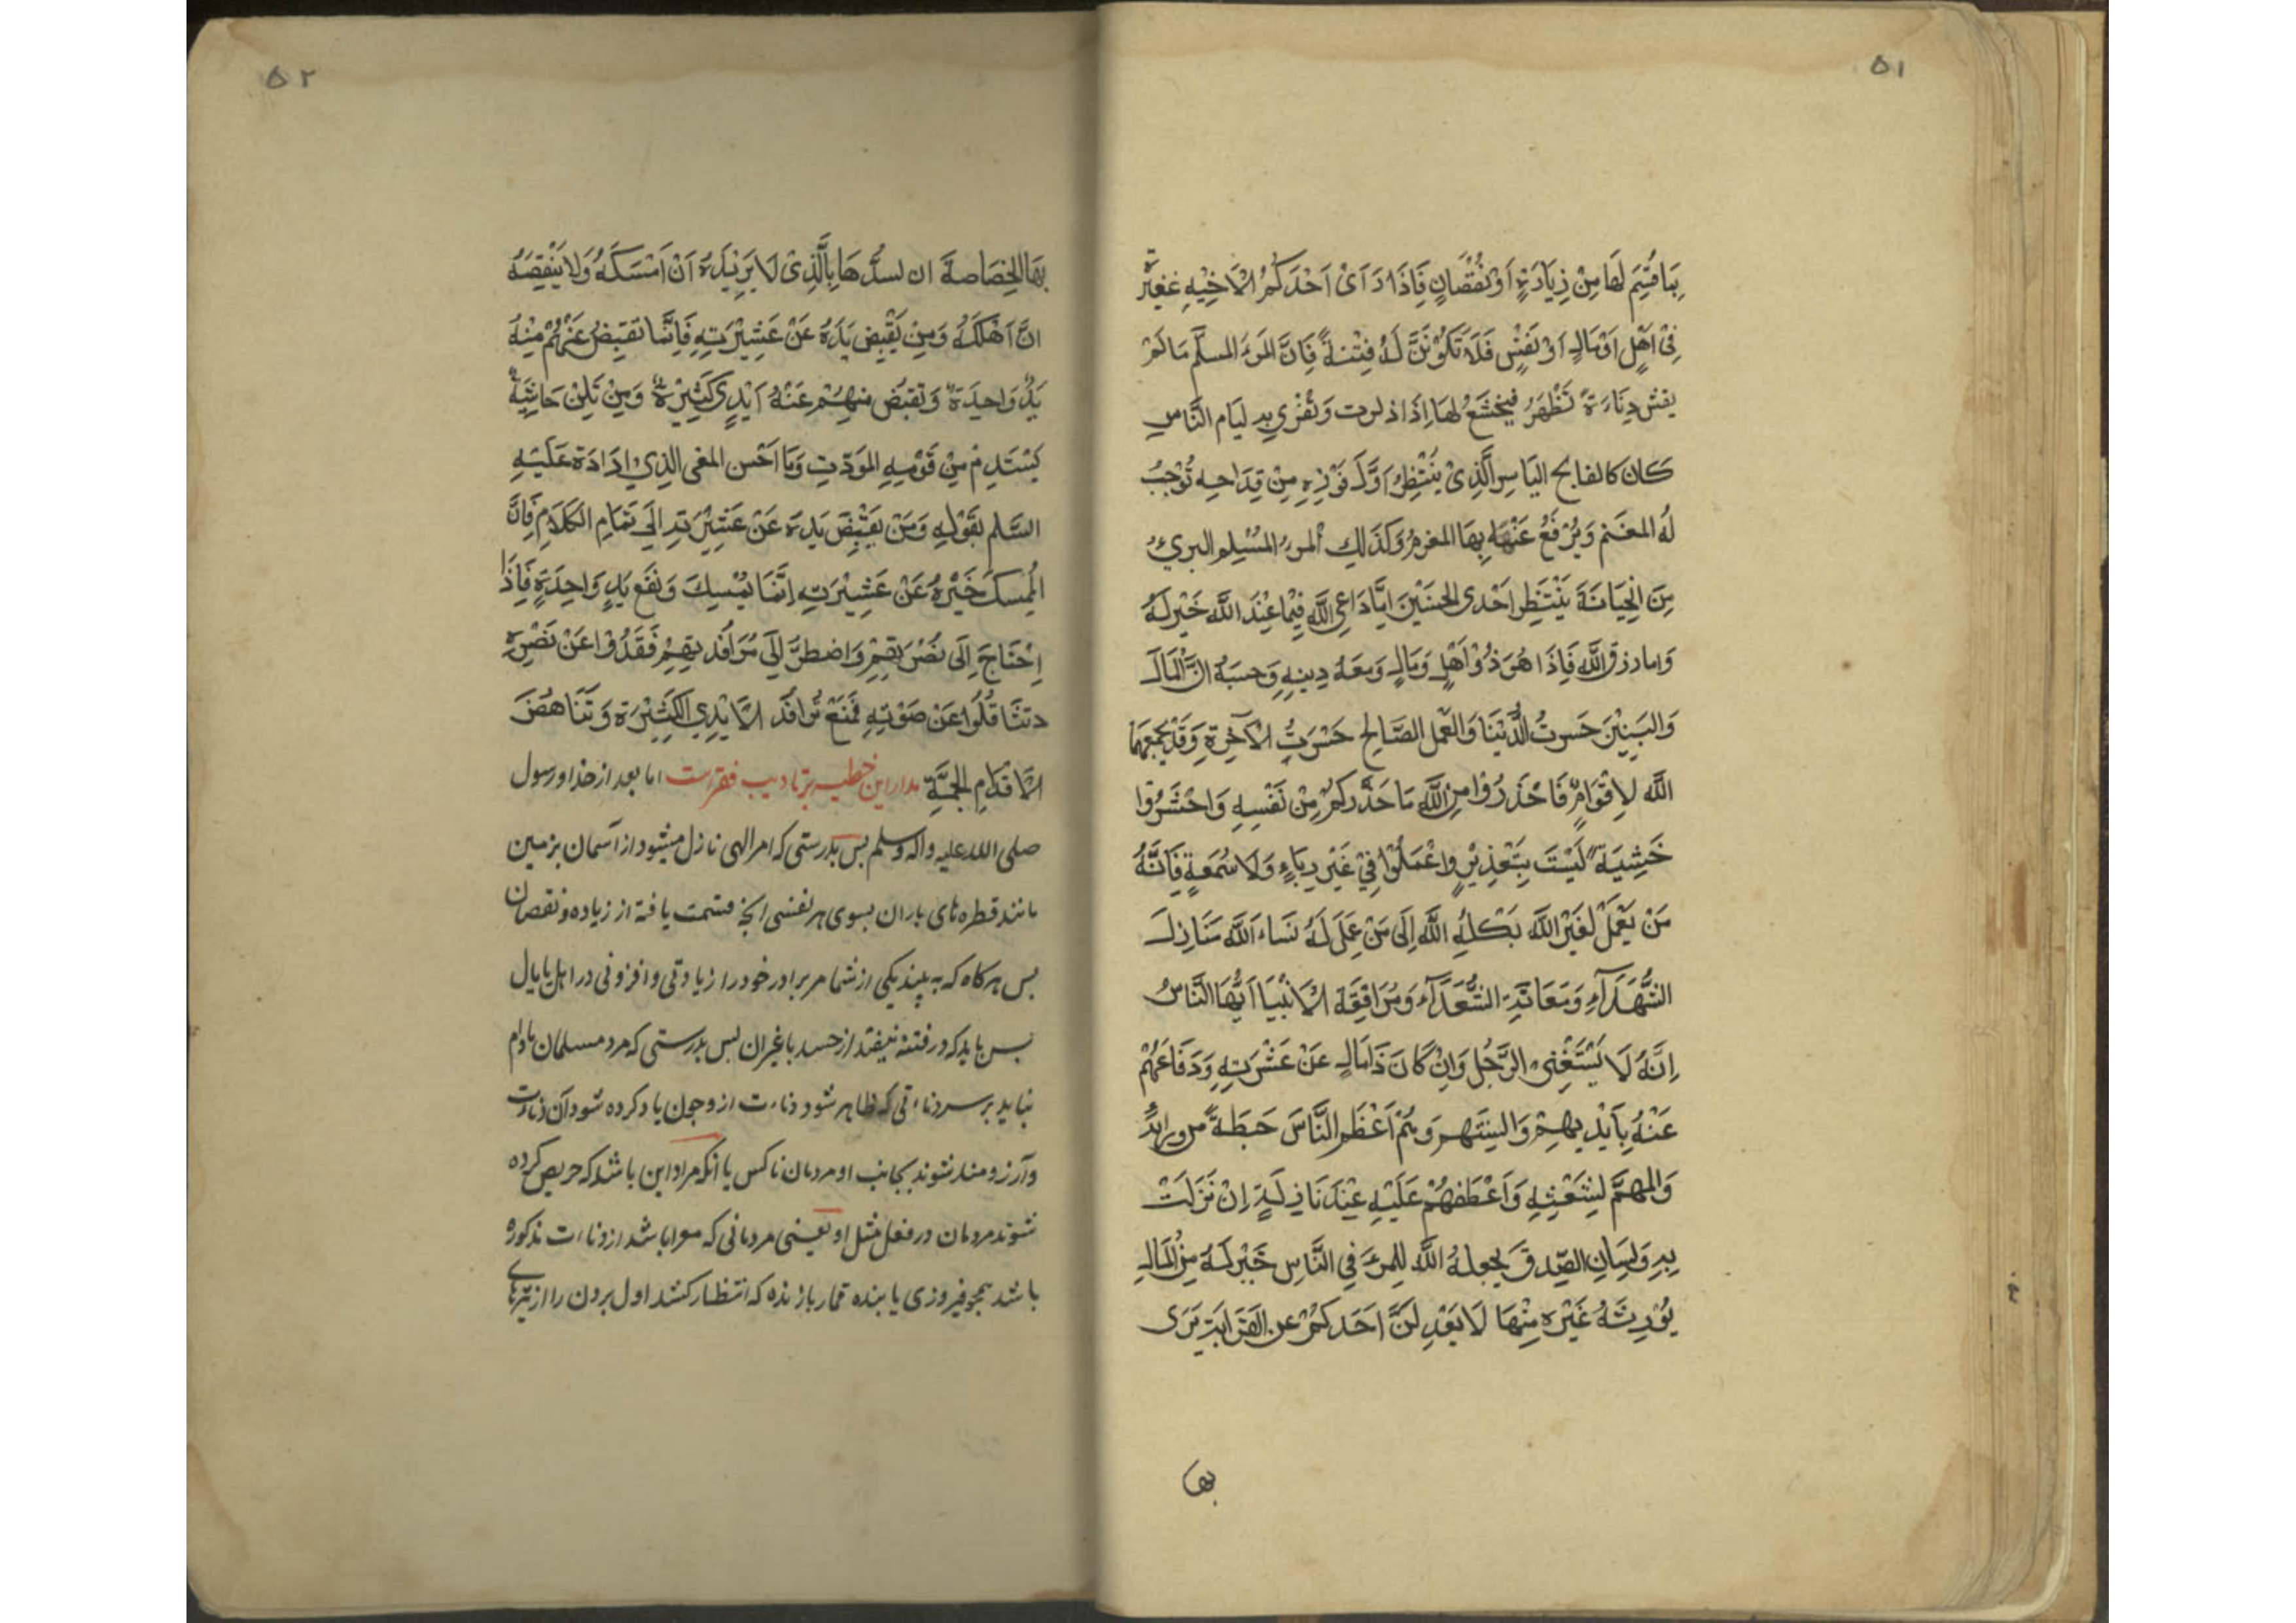 ۵۱
بِمَا قُسِمَ لَهَا مِنْ زِيَادَةٍ اَوْ نُقْصَانٍ فَاِذَا رَاَىْ اَحَدَكُمْ لِاَخِيْهِ غَفِيْرَة
فِىْ اَهْلٍ اَوْ مَالٍ اَوْ نَفْسٍ فَلَا تَكُوْنَنَّ لَهُ فِتْنَةً فَاِنَّ المَرْءَ المسلم مَا لَمْ
يغش دِنَاءَة تَظْهَرُ فيخشَعُ لهَا اِذَا ذكرت وَتُغْرٰى بِهِ لِيَام النَّاسِ
كَان كالفالج اليَاسِرِ الَّذِىْ يَنْتَظِرُ اَوَّلَ فَوْزِهٖ مِنْ قِدَاحِه تُوْجِبُ
لَهُ المغنَم وَيُرْفَعُ عَنْهُ بِهَا المغرمُ وَكَذَالِكَ المرءُ المُسْلِم البرىءُ
مِنَ الْخِيَانَةَ يَنْتَظِر اَحْدى الحسنَيْنَ اِمَّا دَاعِى اللّٰهِ فِيْمَا عِنْدَ اللَّه خَيْر لَهُ
وَاما رزق اللّٰه فَاِذَا هُوَ ذُوْ اَهْلٍ وَمَالٍ وَمَعَهُ دِينِهٖ وَحسَبَهُ انَّ الْمَالَ
وَالبَنِيْنَ حَرثُ الدُّنْيَا وَالعَمل الصَّالِح حَرْثُ الْآخِرَةِ وَقَدْ يَجْمَعهمَا
اللّٰه لِاَقْوَامٍ فَاحْذَرُوْا مِنَ اللّٰه مَا حَذَّركمْ مِنْ نَفْسِهٖ وَاخْشَوْا
خَشِيَة لَيْسَتَ بِتَعْذِيْرٍ وَاعْمَلُوْا فِىْ غَيْر رِيَاءٍ وَلَا سُمعَةٍ فَاِنَّهُ
مَنْ يَعْمَلْ لغَيْرِ اللّٰه يَكِلهُ اللّٰه اِلَى مَنْ عَمِلَ لَهُ نَسَاءَ اللّٰه مَنَازِلَ
الشُّهَدَآءِ وَمَعَايَشَة السُّعَدَآءِ وَمُرَافِقَة الْاَنْبِيَا اَيُّهَا النَّاسُ
اِنَّهُ لَا يَسْتَغْنِى الرَّجُل وَاِنْ كَانَ ذَا مَالٍ عَنْ عَشِيْرَتِهٖ وَدَفَاعهُمْ
عَنْهُ بِاَيْدِيهِمْ وَالسِنَتهم وَهُمْ اَعْظَم النَّاسَ حَيطَةً من ورائه
وَالمهمّ لِشَعْثِهِ وَاَعْطَفهُمْ عَلَيْهِ عِنْدَ نَازِلَةٍ اِنْ نَزَلَتْ
بِهٖ وَلِسَانِ الصِّدقَ يَجعلهُ اللّٰه لِلمرْءِ فِى النَّاسِ خَيْر لَهُ مِنْ الْمَالِ
يُوْرِثَهُ غَيْرَهُ مِنْهَا لَا يَعْدِلَنَّ اَحَدكُمْ عن القَرَابَةِ يَرٰى
بها
۵۲
بِهَا الخِصَاصة ان يسدَّهَا بِالَّذِىْ لَا يَزِيْدُهُ اَنْ اَمْسَكَهُ وَلَا يَنْقِصَهُ
انَّ اَهْلَكَهُ وَمَنْ يَقْبِضْ يَدَهُ عَنْ عَشِيْرَتِهٖ فَاِنَّمَا تقبَضُ عَنْهُمْ مِنْهُ
يَدٌ وَاحِدَة وَتقبَضُ مِنهُمْ عَنْهُ اَيْدِى كَثِيْرَة وَمَنْ تَلِنْ حَاشِيَة
يَسْتَدِمْ مِنْ قَوْمِهِ المَوَدَّت وَمَا اَحْسن المعنى الذِىْ اِرَادَة عَلَيْهِ
السَّلم بقَوْلِهِ وَمَن يَقْبِضَ يَدِهُ عَنْ عَشِيْرَتِهِ اِلَى تَمَامِ الْكَلَامِ فَاِنَّ
الْمُمسكَ خَيْرهُ عَنْ عَشِيْرَتِهِ اِنَّمَا يُمْسِكَ وَنفَع يَدٍ وَاحِدَةٍ فَاِذَا
اِحْتَاجَ اِلَى نُصْرَتِهِمْ وَاضطرَّ اِلَى مُرَافَدَتِهِمْ فَقَعَدُوْا عَنْ نَصْرِهٖ
وتثَاقَلُوا عَنْ صَوْتِهٖ فَمَنَعَ تُرَافَدَ الْاَيْدِى الْكَثِيْرَة وَتَنَاهُضَ
الْاَقْدَامِ الْجَمَّةِ مدار این خطبه بر تادیب فقراست اما بعد از خدا ورسول
صلی الله علیه واله وسلم پس بدرستی که امر الهی نازل میشود از آسمان بزمین
مانند قطره های باران بسوی هر نفسی انچه قسمت یافته از زیاده و نقصان
پس هرگاه که به بیند یکی از شما مر برادر خود را زیادتی و افزونی در اهل یا مال
پس باید که در فتنه نیفتد از حسد باغیران پس بدرستی که مرد مسلمان مادام
نیاید بر سر دناءتی که ظاهر شود دناءت از و چون یاد کرده شود آن دناءت
و آرزومند نشوند بجانب او مردمان ناکس یا آنکه مراد این باشد که حریص کرده
نشوند مردمان در فعل مثل او یعنی مردمانی که معرا باشد از دناءت مذکوره
باشد همچو فیروزی یابنده قمار بازنده که انتظار کشد اول بردن را از تیرهای